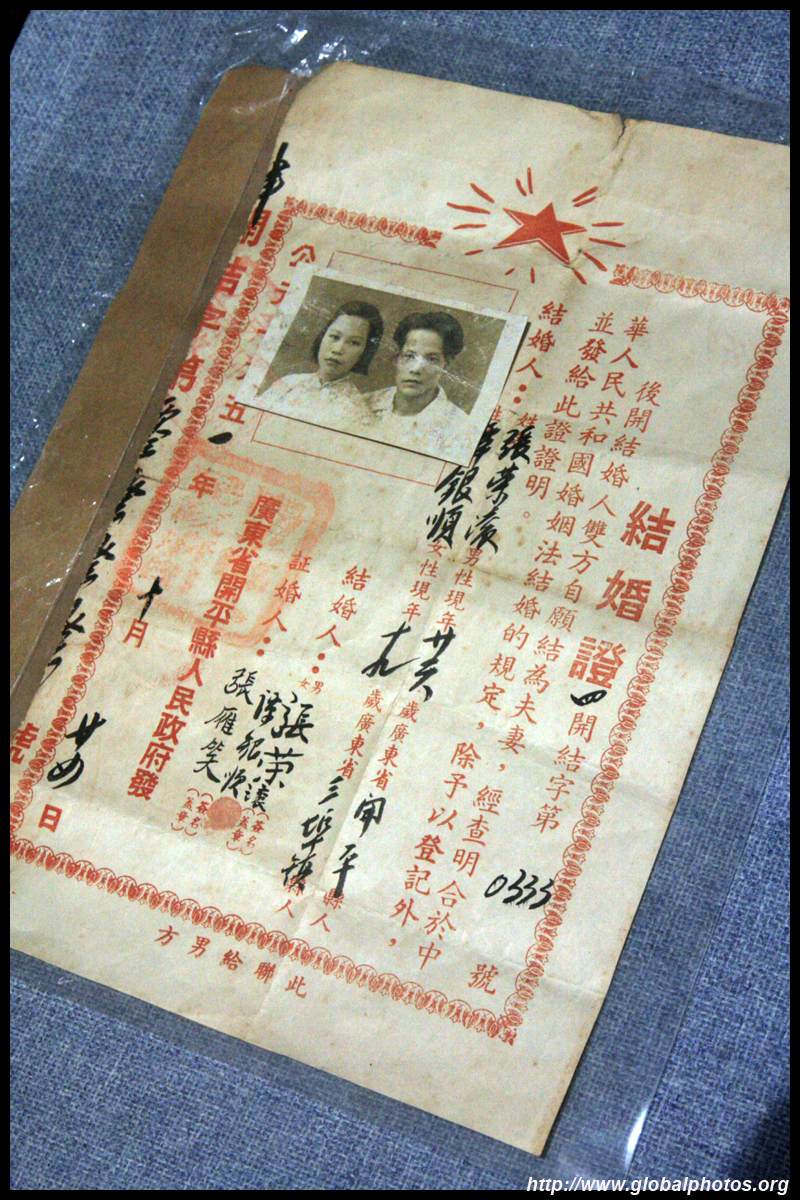 結婚證
四開結字第0333號
後開結婚人雙方自願結為夫妻，經查明合於中
華人民共和國婚姻法結婚的規定，除予以登記外，
並發給此證證明。
結婚人：姓名張榮濱男性現年廿六歲廣東省開平縣人
銀順女性現年十九歲廣東省三埠鎮縣人
結婚人：男張榮濱簽名蓋章
女銀順
証婚人：張雁笑簽名蓋章
廣東省開平縣人民政府發
公元一九五一年十月廿四日
開結字第
號
此聯給男方
http://www.globalphotos.org